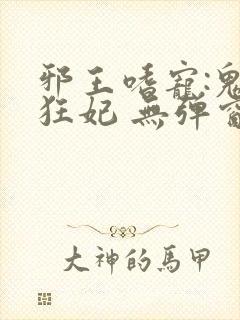 邪王嗜寵:鬼
狂妃 無弹窗
大神的馬甲